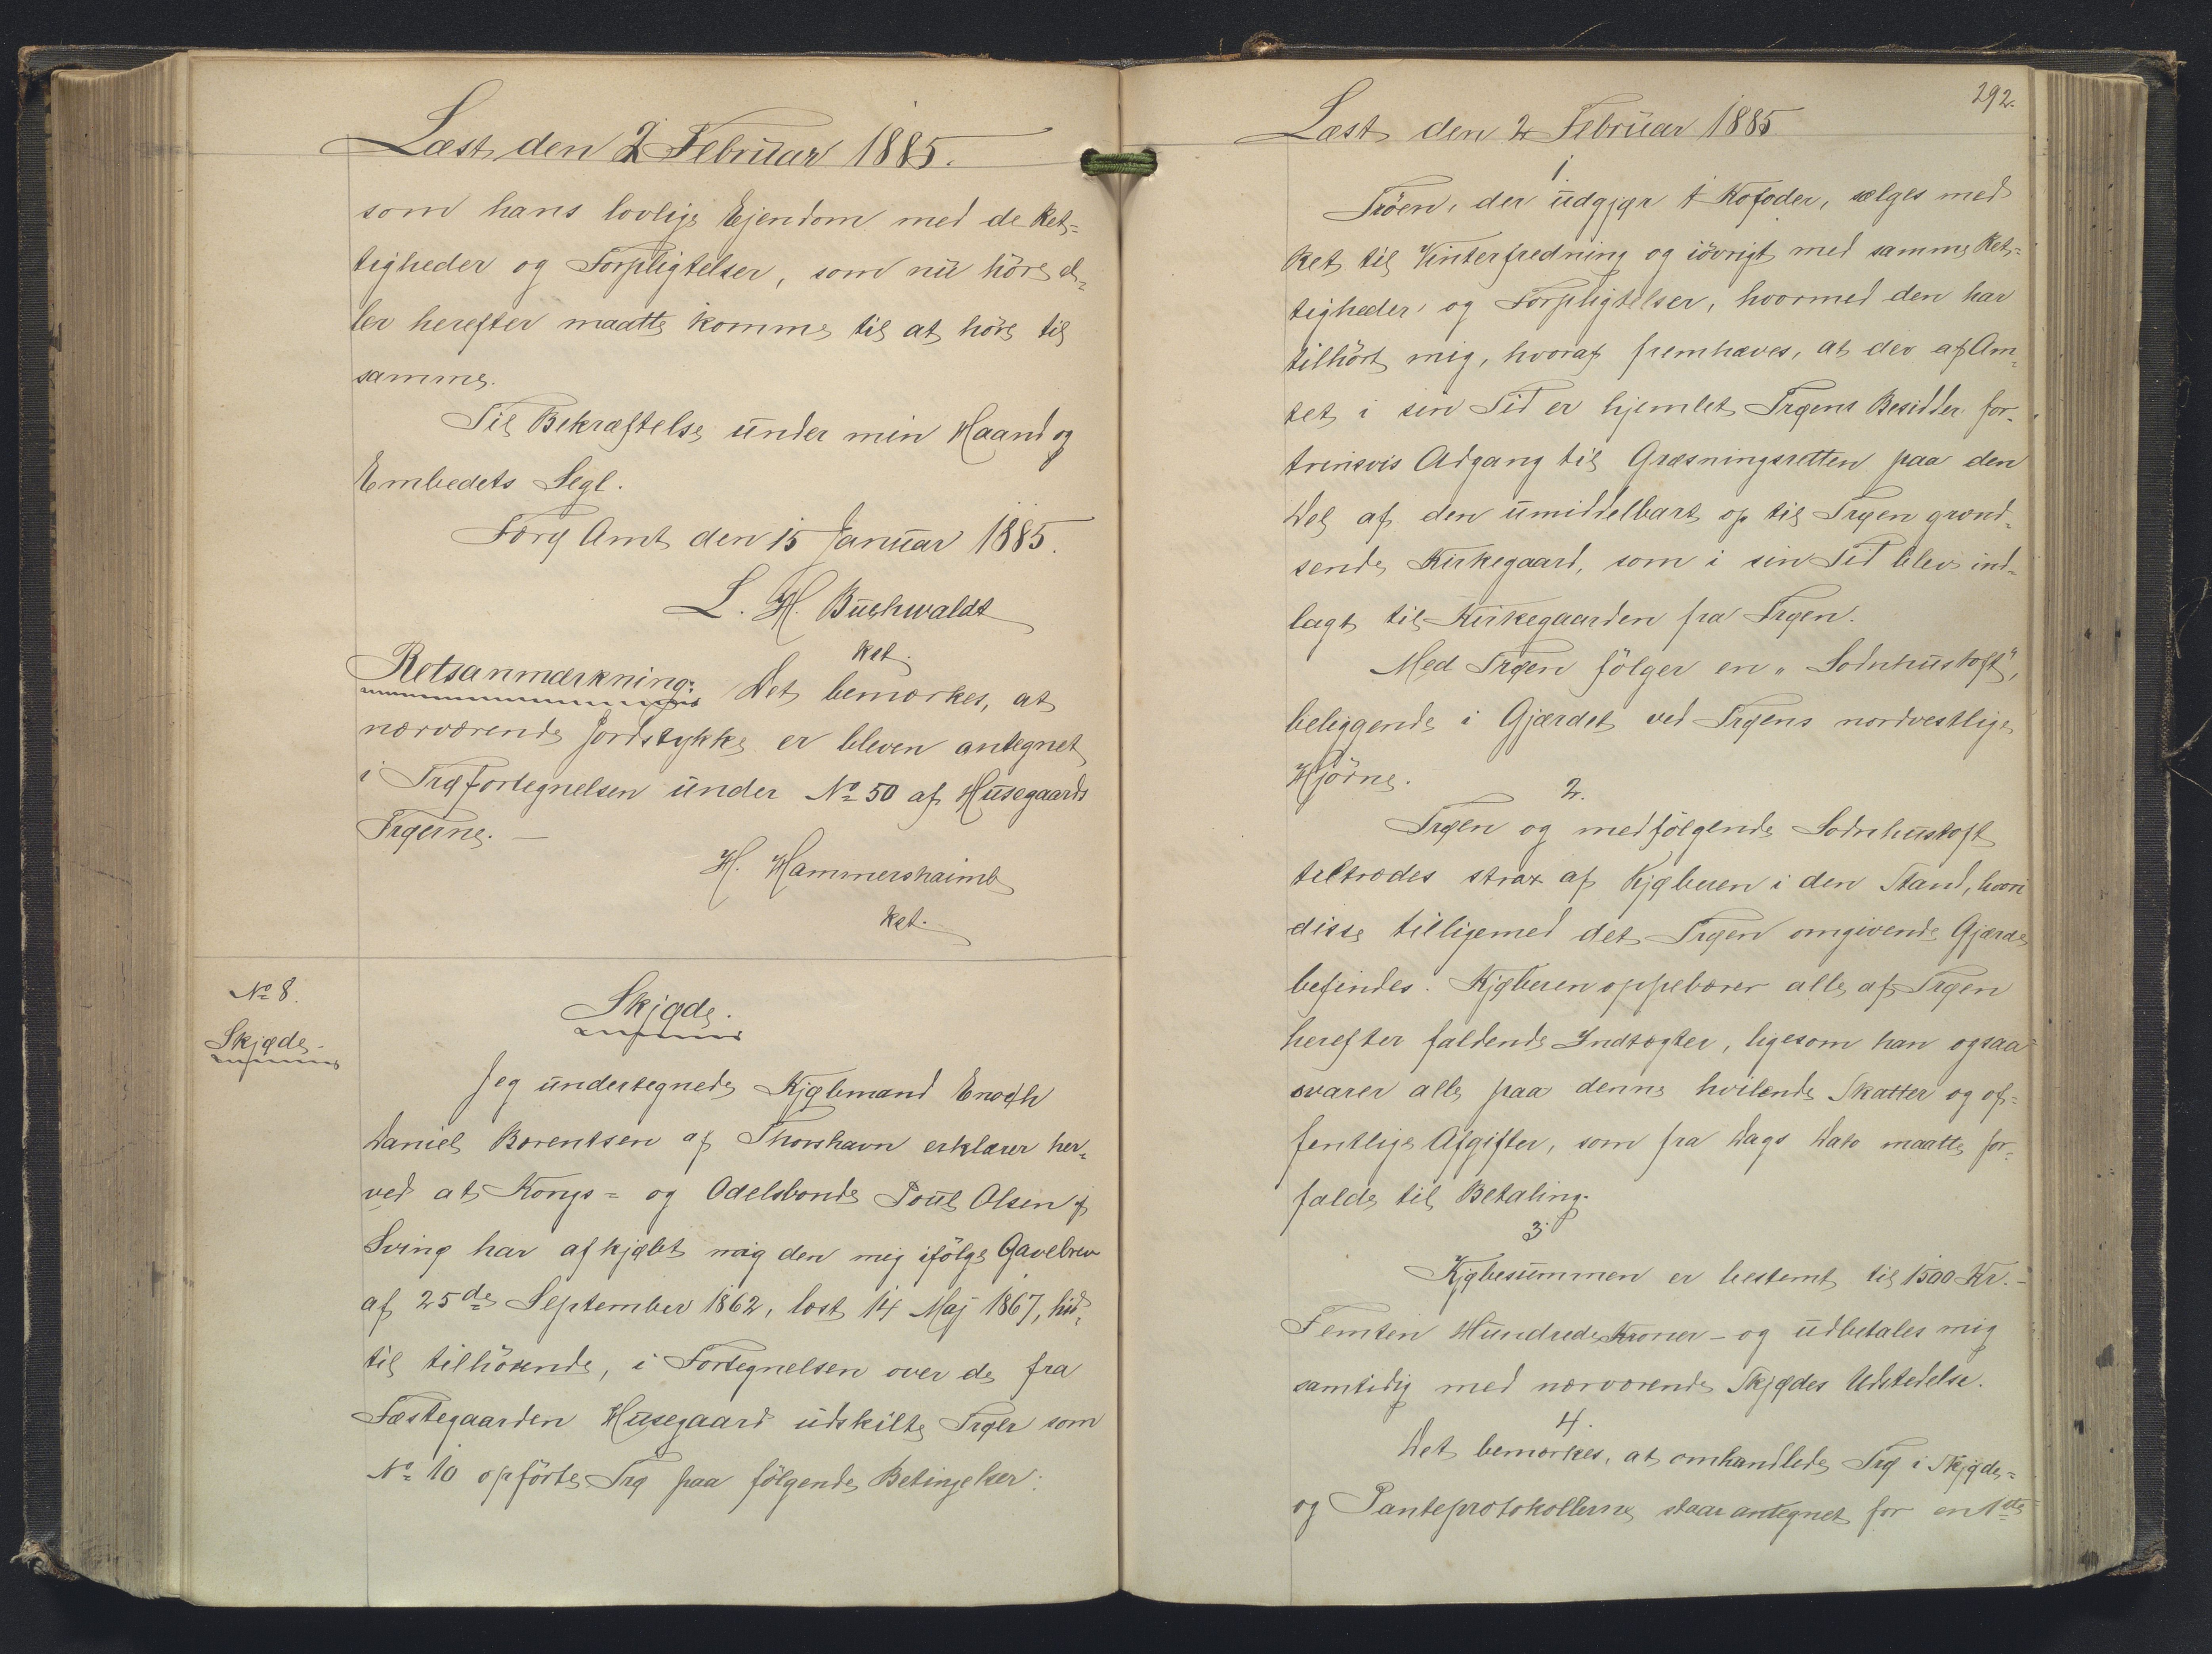 Læst den 2 Februar 1885.
som hans lovlige Ejendom med de Ret=
tigheder og Forpligtelser, som nu höre el=
ler herefter maatte komme til at höre til
samme.
Til Bekræftelse under min Haand og
Embedets Segl.
Færø Amt den 15 Januar 1885.
L. H. Buchwaldt
kst.
Retsanmærkning: Det bemærkes, at
nærværende Jordstykke er bleven antegnet
i Trøfortegnelsen under № 50 af Husegaards
Trøerne. —
H. Hammershaimb
kst.
№ 8.
Skjøde.
Skjøde.
Jeg undertegnede Kjøbmand Enoch
Daniel Bærentsen af Thorshavn erklærer her=
ved at Kongs= og Odelsbonde Poul Olsen af
Sving har afkjøbt mig den mig ifölge Gavebrev
af 25de September 1862, læst 14 Maj 1867, hid=
til tilhörende, i Fortegnelsen over de fra
Fæstegaarden Husegaard udskilte Trøer som
№ 10 opförte Trø paa fölgende Betingelser:
292.
Læst den 2 Februar 1885
1.
Tröen, der udgjør 1 Kofoder, sælges med
Ret til Vinterfredning og iövrigt med samme Ret=
tigheder og Forpligtelser, hvormed den har
tilhört mig, hvoraf fremhæves, at der af Am=
tet i sin Tid er hjemlet Trøens Besidder for=
trinsvis Adgang til Græsningsretten paa den
Del af den umiddelbart op til Trøen grænd=
sende Kirkegaard, som i sin Tid blev ind=
lagt til Kirkegaarden fra Trøen.
Med Trøen fölger en „Sodnhustoft",
beliggende i Gjærdet ved Trøens nordvestlige
Hjörne.
2.
Trøen og medfölgende Sodnhustoft
tiltrædes strax af Kjøberen i den Stand, hvori
disse tilligemed det Trøen omgivende Gjærde
befindes. Kjøberen oppebærer alle af Trøen
herefter faldende Indtægter, ligesom han ogsaa
svarer alle paa denne hvilende Skatter og of=
fentlige Afgifter, som fra Dags Dato maatte for=
falde til Betaling.
3.
Kjøbesummen er bestemt til 1500 Kr. –
Femten Hundrede Kroner – og udbetales mig
samtidig med nærværende Skjødes Udstedelse.
4.
Det bemærkes, at omhandlede Trø i Skjøde=
og Panteprotokollerne staar antegnet for en 1ste